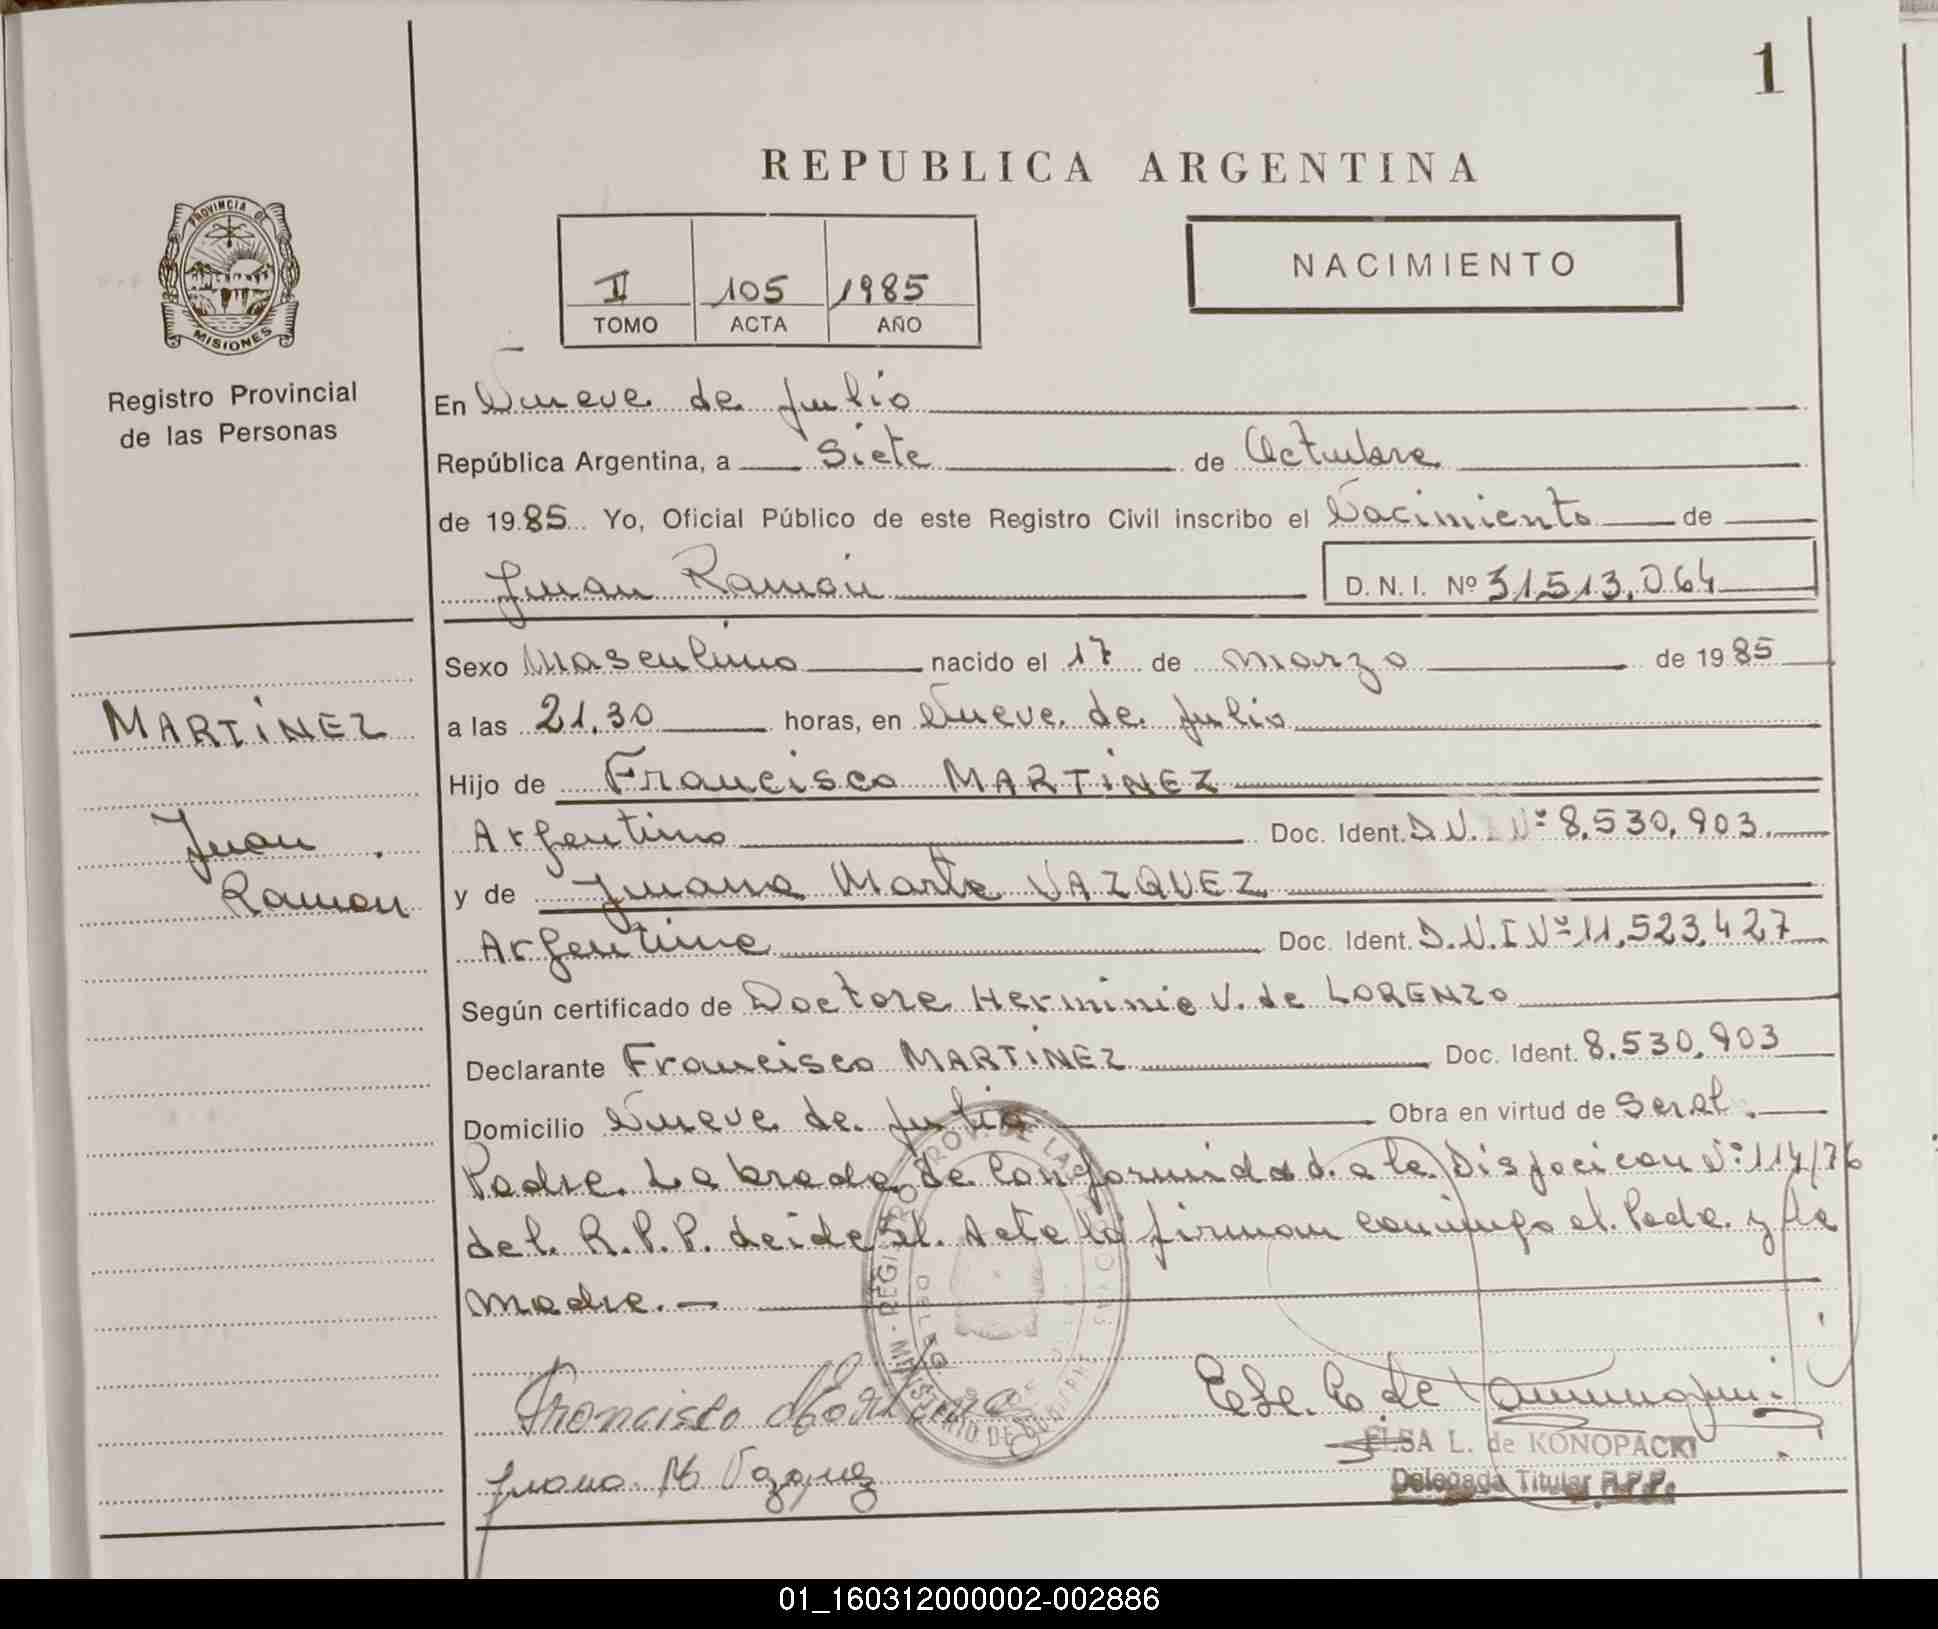 1
REPUBLICA ARGENTINA
PROVINCIA DE
MISIONES
Registro Provincial
de las Personas
II 105 1985
TOMO ACTA AÑO
NACIMIENTO
En Nueve de Julio
República Argentina, a Siete de Octubre
de 1985 Yo, Oficial Público de este Registro Civil inscribo el Nacimiento de
Juan Ramón
D. N. I. Nº 31,513,064
MARTINEZ
Juan
Ramon
Sexo Masculino nacido el 17 de marzo de 1985
a las 21.30 horas, en Nueve de Julio
Hijo de Francisco MARTINEZ
Argentino Doc. Ident. D.N.I Nº 8,530,903
y de Juana Marta VAZQUEZ
Argentina Doc. Ident. D.N.I Nº 11,523,427
Según certificado de Doctora Herminia V. de LORENZO
Declarante Francisco MARTINEZ Doc. Ident. 8.530,903
Domicilio Nueve de Julio Obra en virtud de Ser el
Padre. Labrada de Conformidad a la Disposicion Nº 114/76
del R.P.P. Leida el Acta la firman conmigo el Padre y la
Madre.
Francisco Martinez
Juana M Vazquez
ELSA L. de KONOPACKI
Delegada Titular R.P.P.
01_160312000002-002886